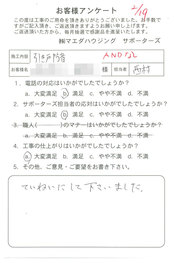 お客様アンケート
この度は工事のご用命を頂きありがとうございました。お手数で
すがご記入頂き、ご返送頂けますようお願い申し上げます。
ご返送頂いた方から、毎月抽選で感謝品を進呈いたします。
㈱マエダハウジング サポーターズ
施工内容
お客様名 様 担当者 西村
1. 電話の対応はいかがでしたでしょうか?
a. 大変満足 b. 満足 c. やや不満 d. 不満
2. サポーターズ担当者の応対はいかがでしたでしょうか?
a. 大変満足 b. 満足 c. やや不満 d. 不満
3. 職人( )のマナーはいかがでしたでしょうか?
a. 大変満足 b. 満足 c. やや不満 d. 不満
4. 工事の仕上がりはいかがでしたでしょうか?
a. 大変満足 b. 満足 c. やや不満 d. 不満
5. その他、ご意見・ご要望をお書き下さい。
ていねいにして下さいました。